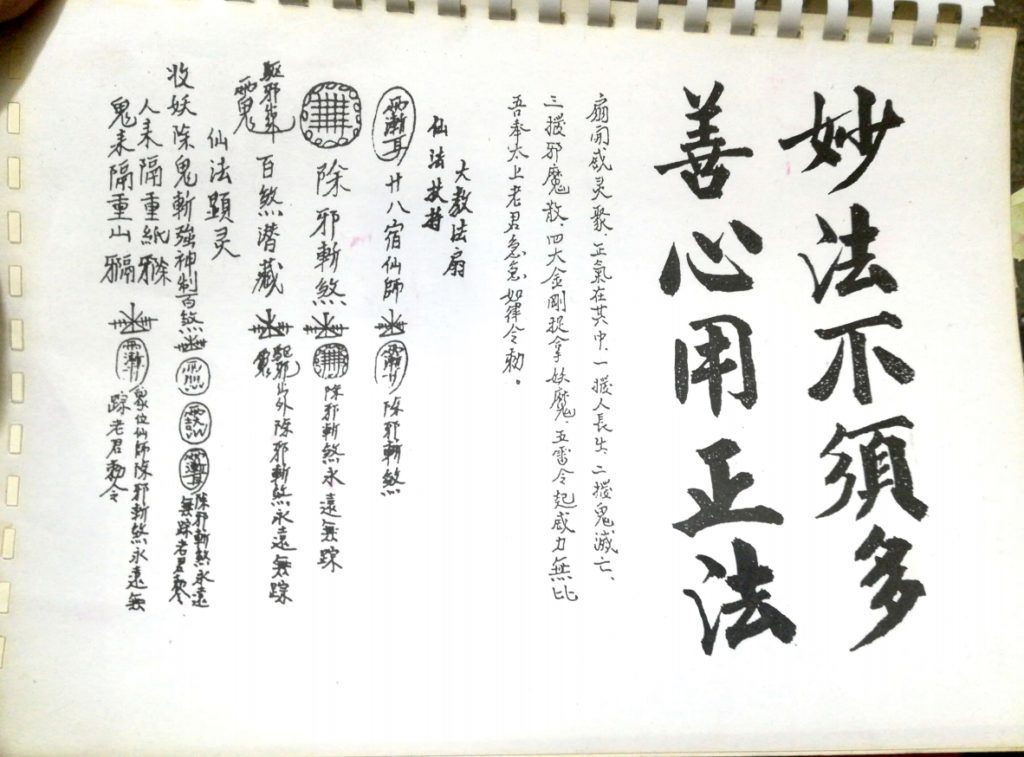 妙法不須多
善心用正法
扇開威灵聚、正氣在其中、一搧人長生、二搧鬼滅亡、
三搧邪魔散、四大金剛捉拿妖魔、五雷令起威力無比
吾奉太上老君急急如律令勅。
大教法扇
仙法扶持
廿八宿仙師 除邪斬煞
除邪斬煞 除邪斬煞永遠無踪
驅邪 百煞潜藏 驅邪出外除邪斬煞永遠無踪
仙法顕灵
收妖除鬼斬強神制百煞 除邪斬煞永遠
無踪老君勅令
人未隔重紙
鬼未隔重山 衆位仙師除邪斬煞永遠無
踪老君勅令